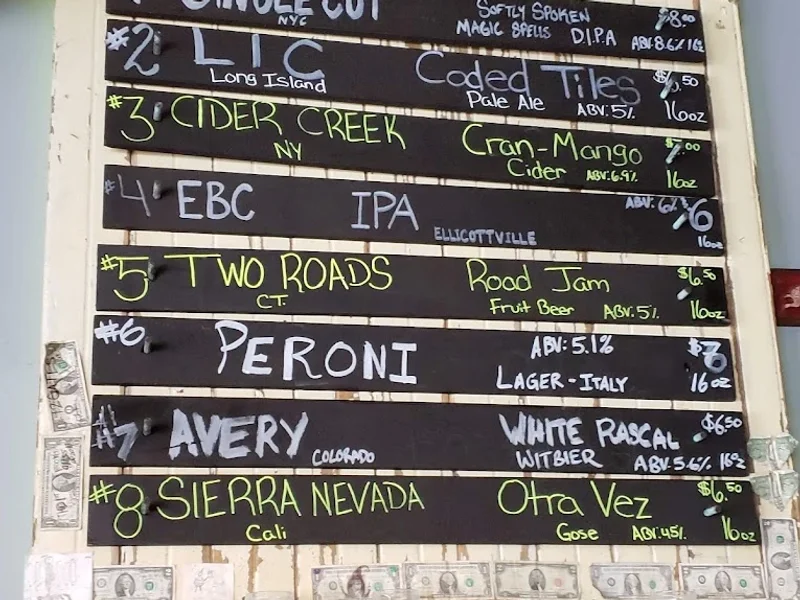 SINGLE CUT SOFTLY SPOKEN $8.00
NYC MAGIC SPELLS D.I.P.A ABV:8.6% 16oz
#2 LIC Coded Tiles .50
Long Island Pale Ale ABV:5% 16oz
#3 CIDER CREEK Cran-Mango .00
NY Cider ABV:6.9% 16oz
#4 EBC IPA ABV: 6% $6
ELLICOTTVILLE 16oz
#5 TWO ROADS Road Jam $6.50
CT. Fruit Beer ABV:5% 16oz
#6 PERONI ABV:5.1%
LAGER-ITALY 16oz
#7 AVERY WHITE RASCAL $6.50
COLORADO WITBIER ABV:5.6% 16oz
#8 SIERRA NEVADA Otra Vez $6.50
Cali Gose ABV:4.5% 16oz